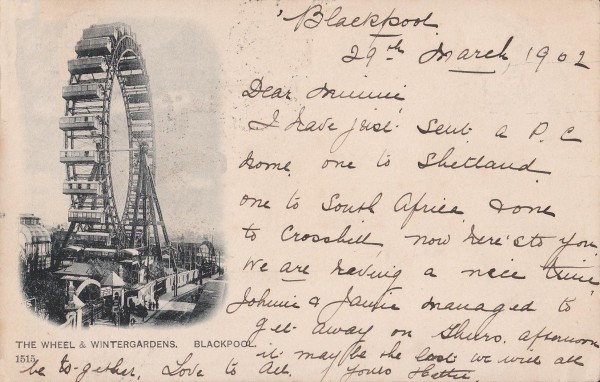 'Blackpool
29th March, 1902
Dear Minnie,
I have just sent a P.C
home, one to Shetland
one to South Africa & one
to Crosshill, now here's to you.
We are having a nice time,
Johnnie & Jamie managed to
get away on Thurs. afternoon
it may be the last we will all
be to-gether, Love to All. Yours Hettie.
THE WHEEL & WINTERGARDENS. BLACKPOOL.
1515